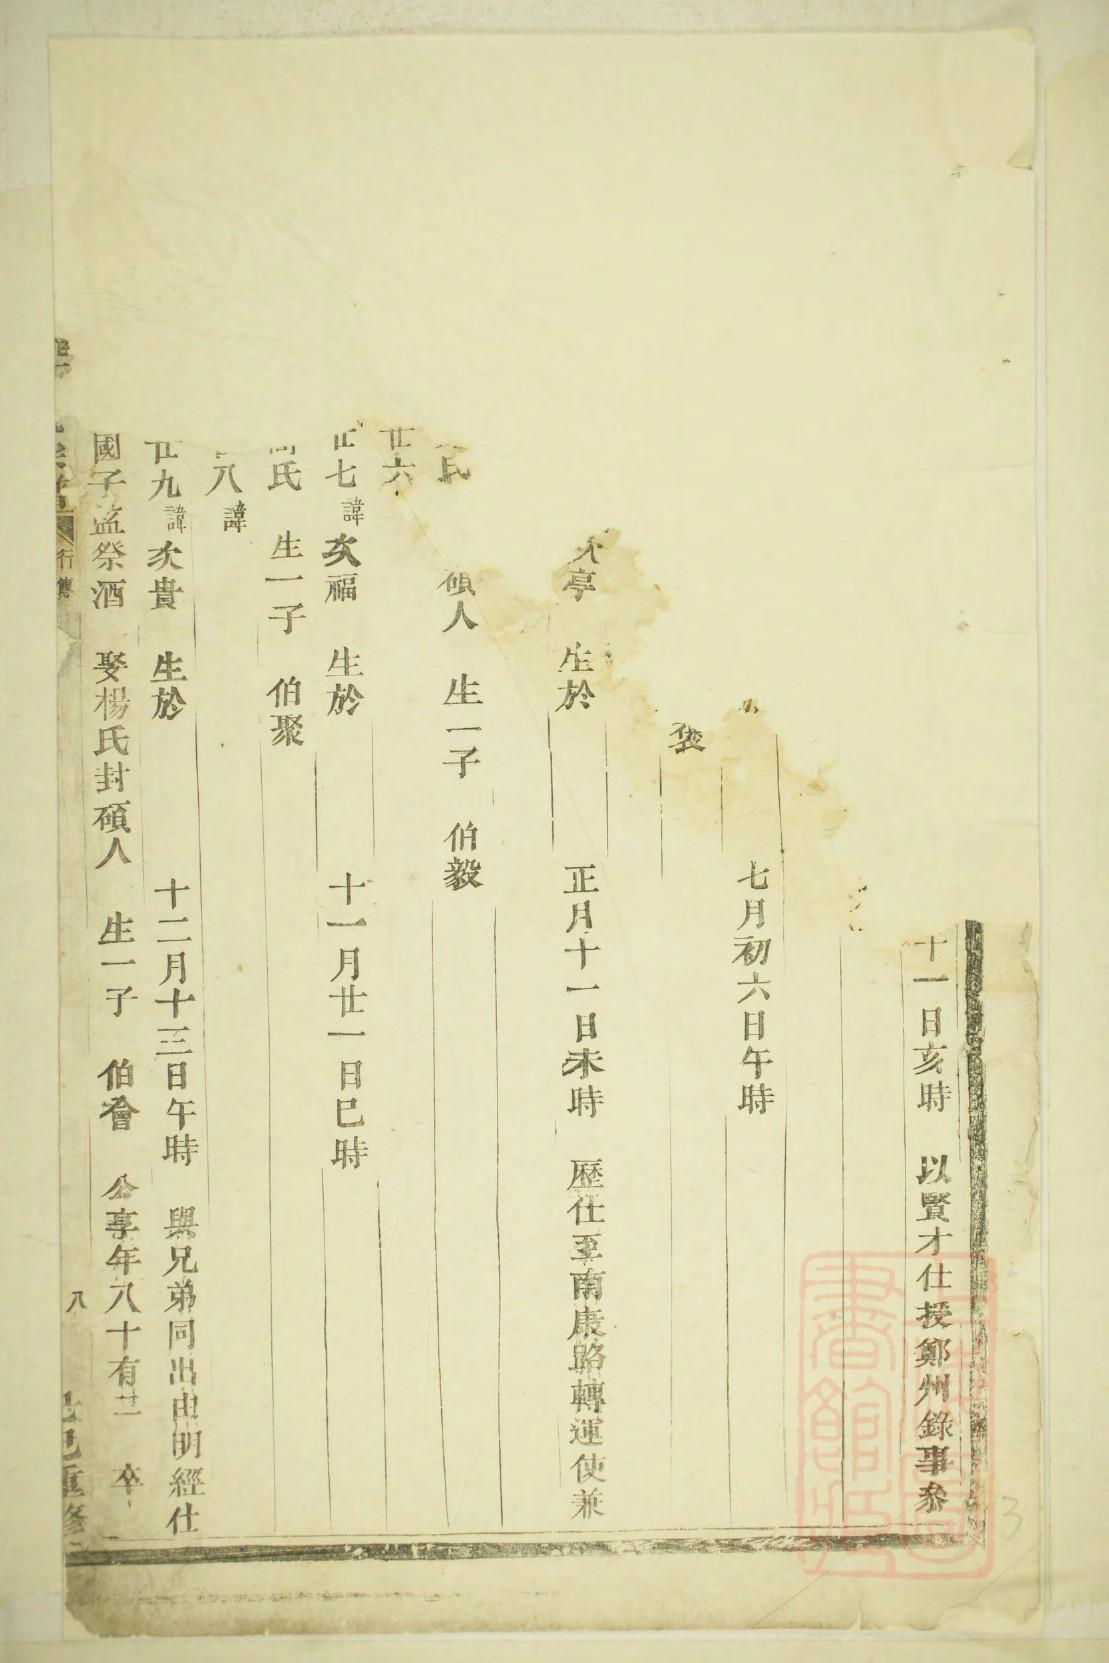 十一日亥時　以賢才仕授鄭州錄事參
七月初六日午時
袋
亭　生於　正月十一日未時　歷仕至南康路轉運使兼
氏　碩人　生一子　伯毅
廿六
廿七諱文福　生於　十一月廿一日巳時
氏　生一子　伯聚
八諱
廿九諱文貴　生於　十二月十三日午時　與兄弟同出由明經仕
國子監祭酒　娶楊氏封碩人　生一子　伯會　公享年八十有三　卒
行傳　八　巳重修